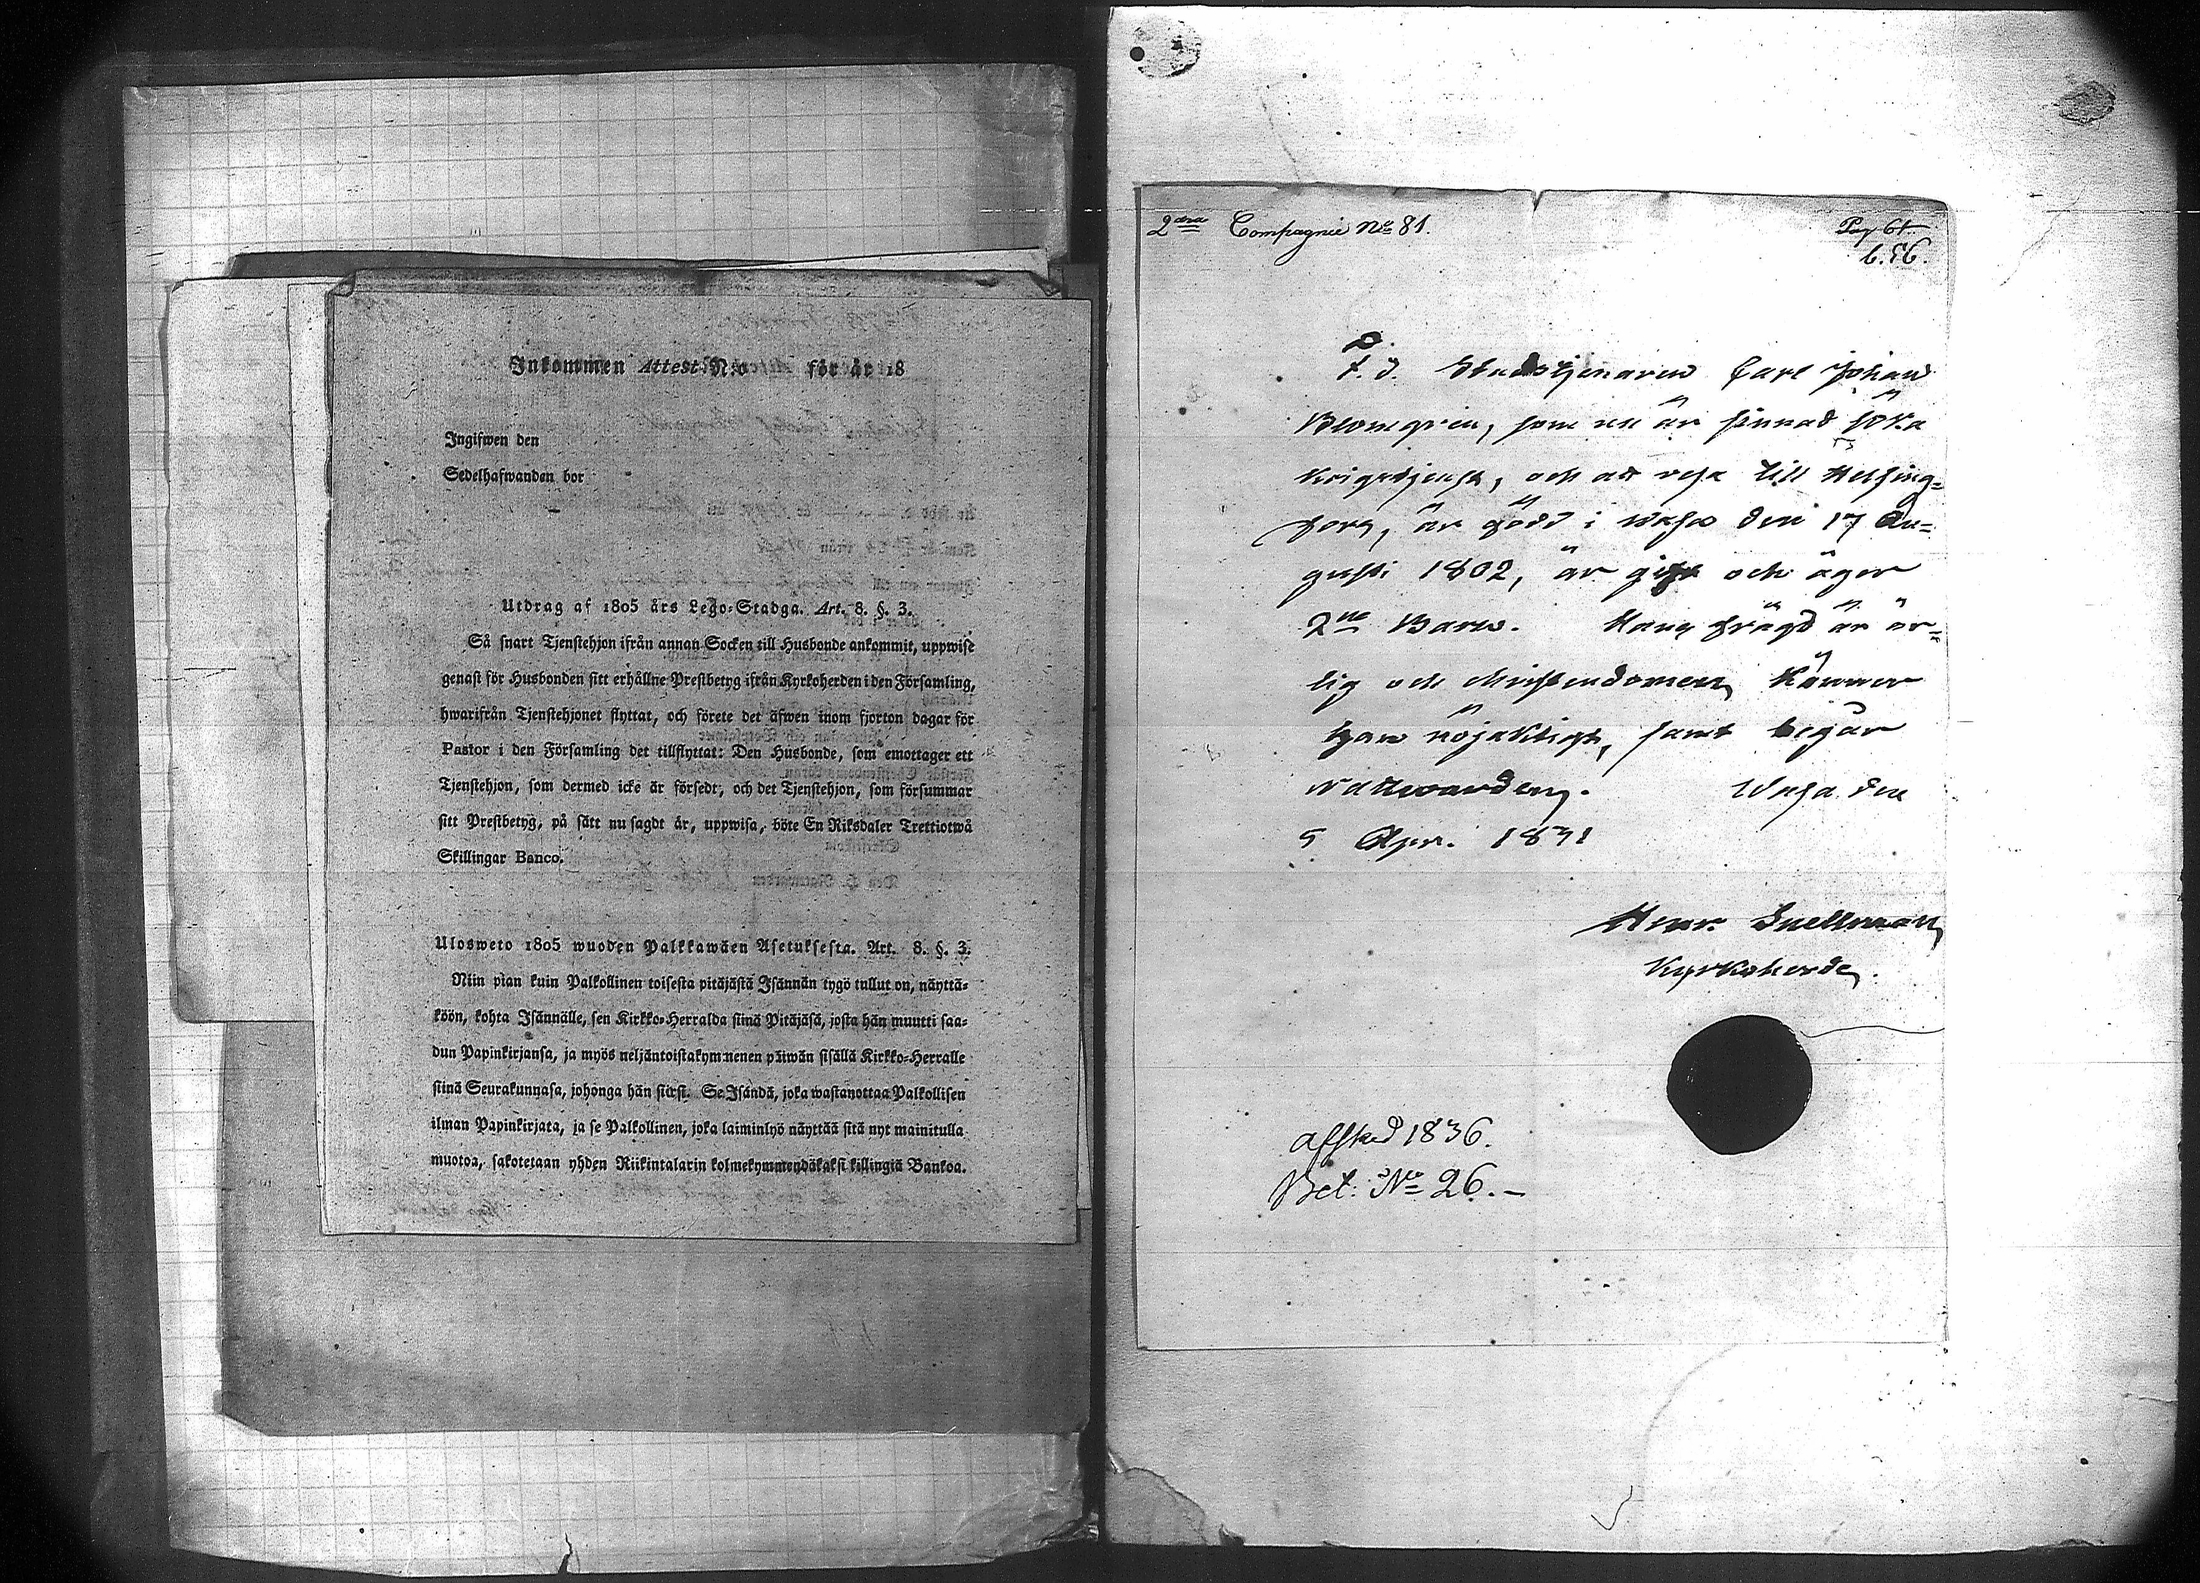 Inkommen Attest N:o för år 18
Ingifwen den
Sedelhafwanden bor
Utdrag af 1805 års Lego-Stadga. Art. 8. §. 3.
Så snart Tjenstehjon ifrån annan Socken till Husbonde ankommit, uppwise
genast för Husbonden sitt erhållne Prestbetyg ifrån Kyrkoherden i den Församling,
hwarifrån Tjenstehjonet flyttat, och förete det äfwen inom fjorton dagar för
Pastor i den Församling det tillflyttat: Den Husbonde, som emottager ett
Tjenstehjon, som dermed icke är försedt, och det Tjenstehjon, som försummar
sitt Prestbetyg, på sätt nu sagdt är, uppwisa, böte En Riksdaler Trettiotwå
Skillingar Banco.
Ulosweto 1805 wuoden Palkkawäen Asetuksesta. Art. 8. §. 3.
Niin pian kuin Palkollinen toisesta pitäjästä Isännän tygö tullut on, näyttä-
köön, kohta Isännälle, sen Kirkko-Herralda siinä Pitäjäsä, josta hän muutti saa-
dun Papinkirjansa, ja myös neljäntoistakymmenen päiwän sisällä Kirkko-Herralle
siinä Seurakunnasa, johonga hän siirsi. Se Isändä, joka wastanottaa Palkollisen
ilman Papinkirjata, ja se Palkollinen, joka laiminlyö näyttää sitä nyt mainitulla
muotoa, sakotetaan yhden Riikintalarin kolmekymmendäkaksi killingiä Bankoa.
2dra Compagnie No 81.
Pag 61
b. 56.
F. d. Stadstjenaren Carl Johan
Blomgren, som nu är sinnad söka
krigstjenst, och att resa till Helsing=
fors, är född i Wasa den 17 Au=
gusti 1802, är gift och äger
2ne Barn. Hans frägd är är=
lig och christendomen känner
han nöjaktigt, samt begår
Nattwarden. Wasa den
5 Apr. 1831
Henr. Snellman
Kyrkoherde.
afsked 1836.
Bet: No 26. –